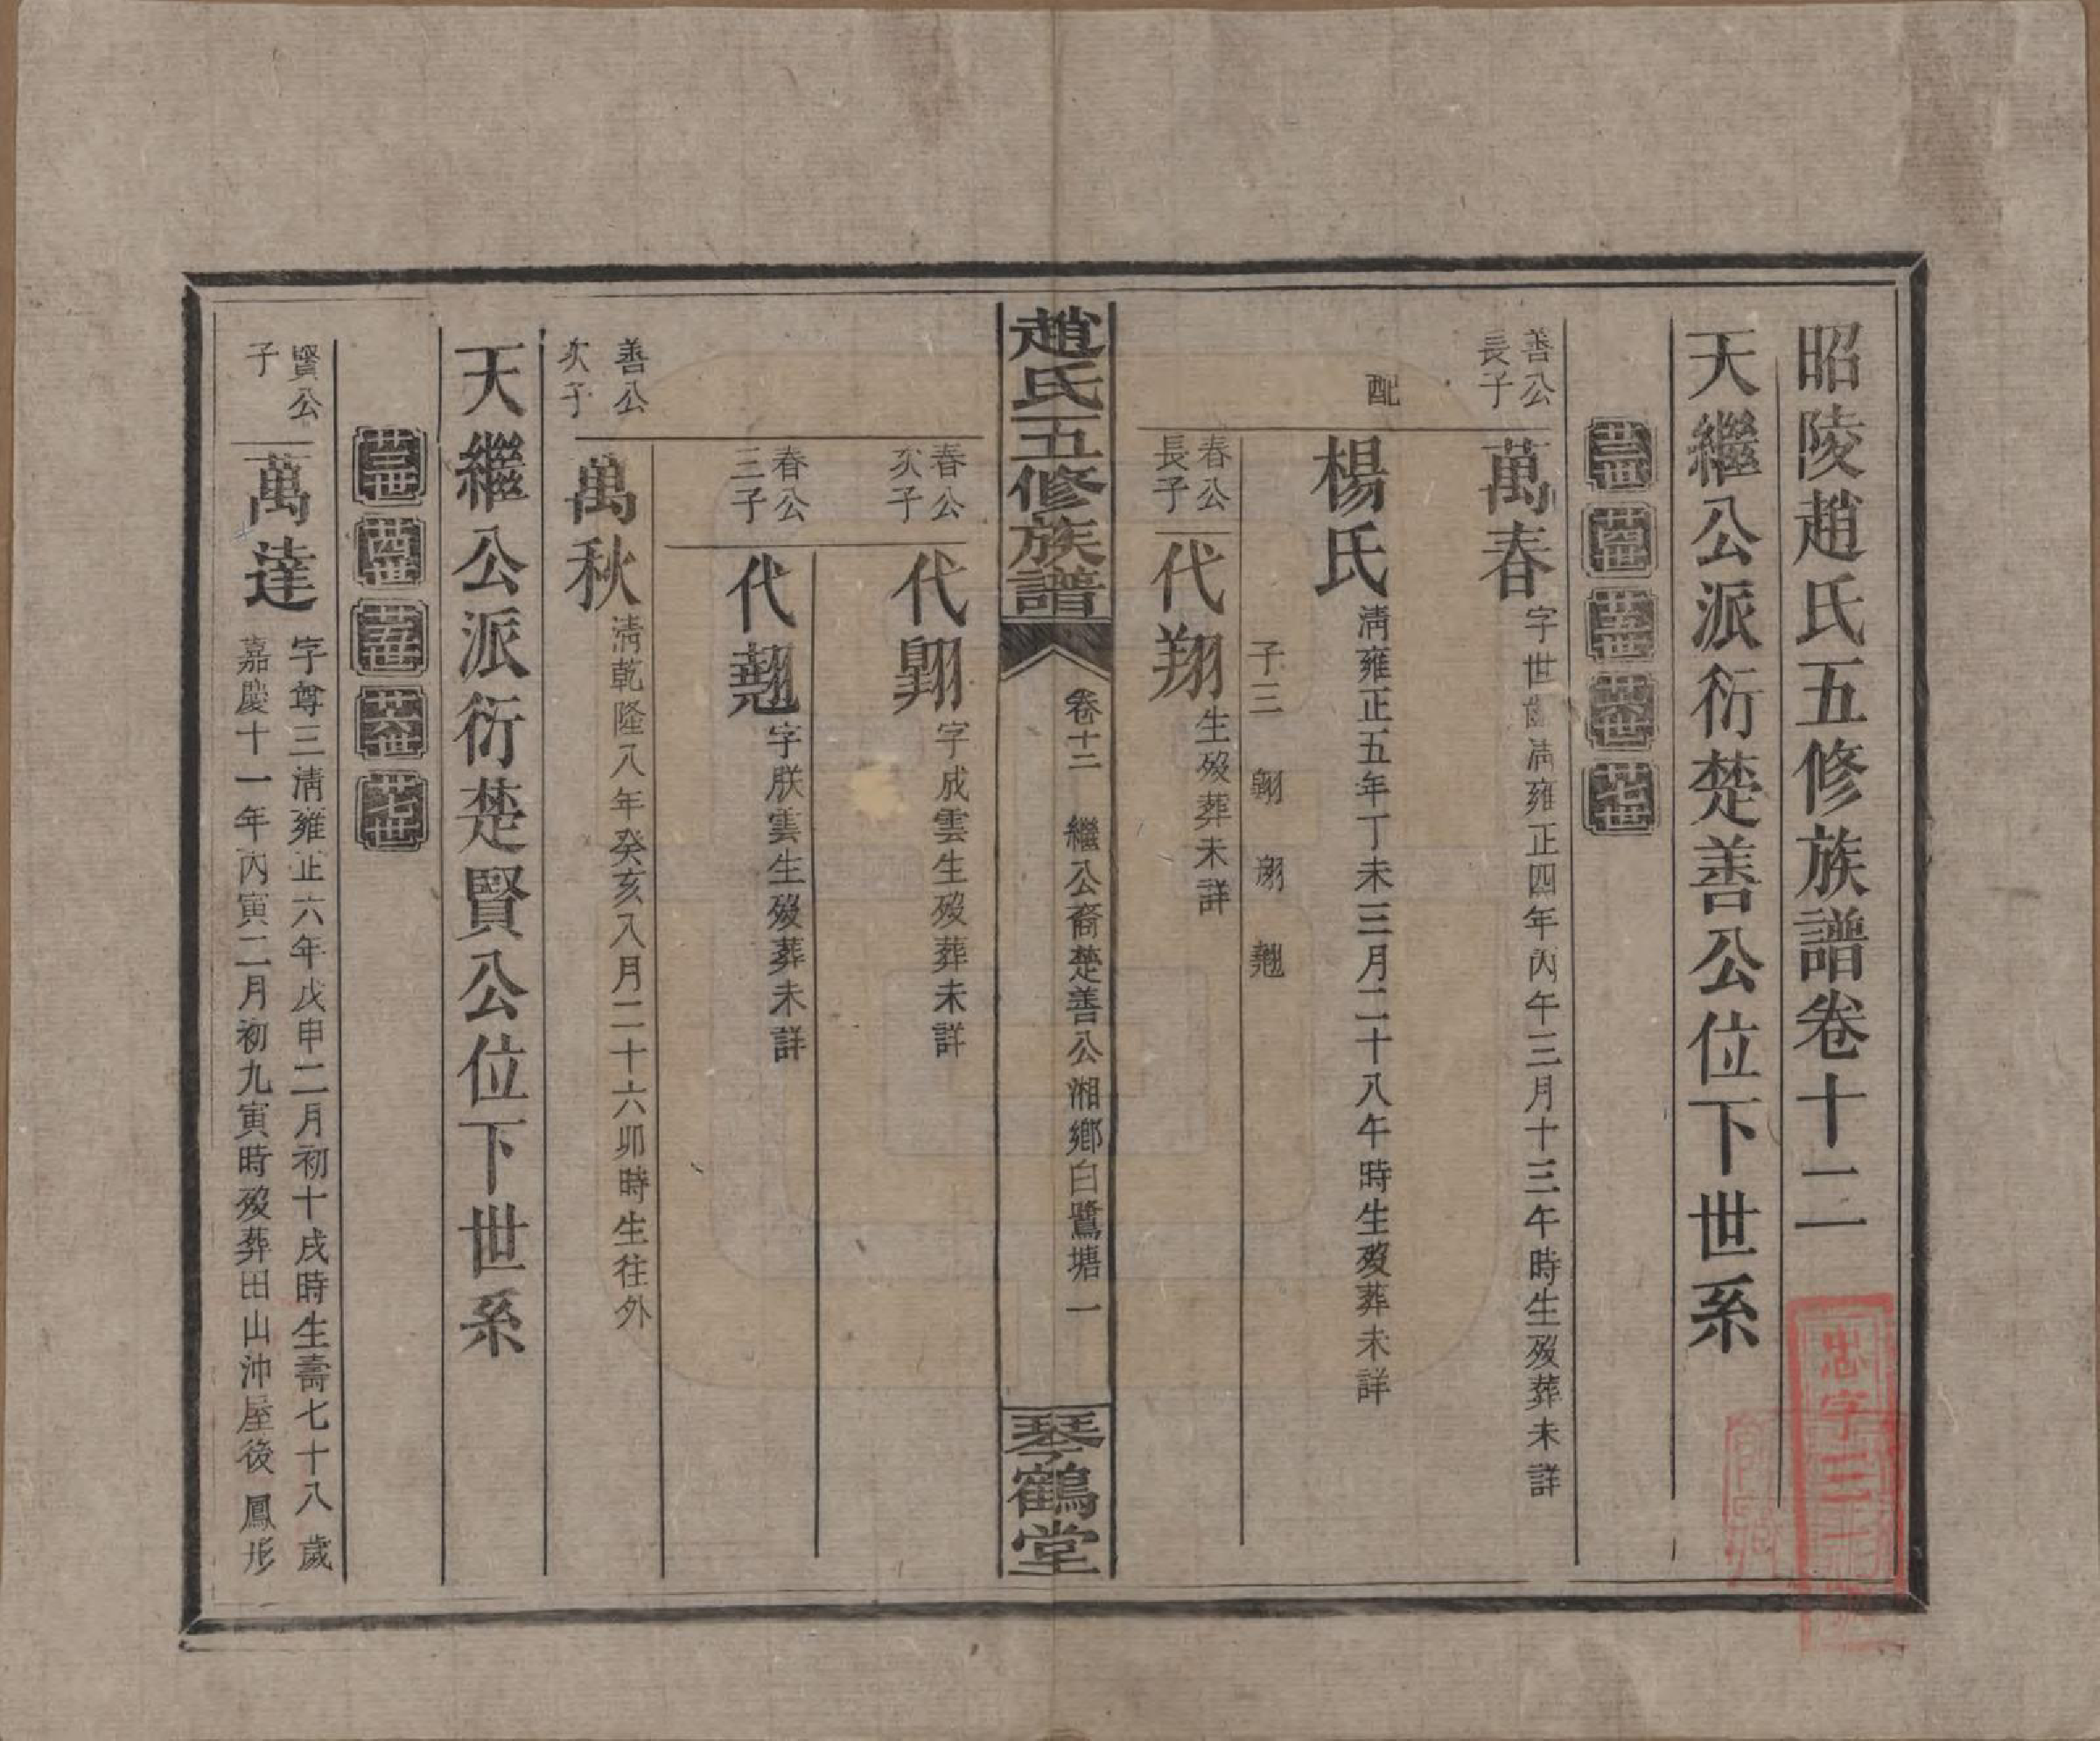 昭陵趙氏五修族譜卷十二
天繼公派衍楚善公位下世系
廿三世 廿四世 廿五世 廿六世 廿七世
善公
長子
萬春
字世 清雍正四年丙午三月十三午時生歿葬未詳
配
楊氏
清雍正五年丁未三月二十八午時生歿葬未詳
子三 翱 翔 翹
春公
長子
代翔
生歿葬未詳
趙氏五修族譜
卷十二 繼公裔楚善公湘鄉白鷺塘 一
琴鶴堂
春公
次子
代翱
字成雲生歿葬未詳
春公
三子
代翹
字朕雲生歿葬未詳
善公
次子
萬秋
清乾隆八年癸亥八月二十六卯時生往外
天繼公派衍楚賢公位下世系
廿三世 廿四世 廿五世 廿六世 廿七世
賢公
子
萬達
字尊三清雍正六年戊申二月初十戌時生壽七十八歲
嘉慶十一年丙寅二月初九寅時歿葬田山沖屋後鳳形
忠字三二